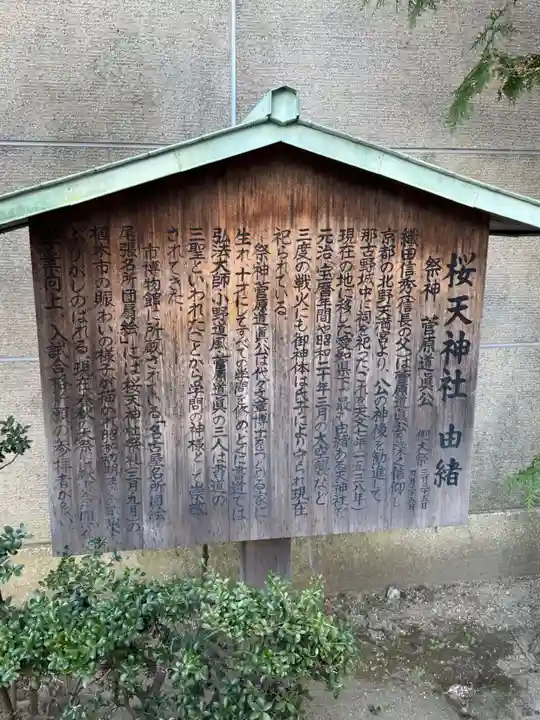 桜天神社 由緒
祭神 菅原道真公
例大祭 三月二十五日
織田信秀(信長の父)は菅原道真公を深く信仰し
京都の北野天満宮より、公の神像を勧進して
那古野城中に祠を祀ったこれを天文七年(一五三八年)
現在の地に移した愛知県下で最も由緒ある天神社で
元治、宝暦年間や昭和二十年三月の大空襲など
三度の戦火にも御神体は氏子により守られ現在
祀られている。
祭神菅原道真公は代々文章博士をつとめる家に
生れ、十才にしてすべての学問を修めとくに書道では
弘法大師、小野道風、菅原道真の三人は書道の
三聖といわれたことから学問の神様として崇敬
されてきた。
市博物館に所蔵されている「名古屋名所図絵
尾張名所団扇絵」には桜天神社祭礼(三月、九月)の
植木市の賑わいの様子が描かれ
のばれる。現在
学業向上、入試合格祈願の参拝者が多い。